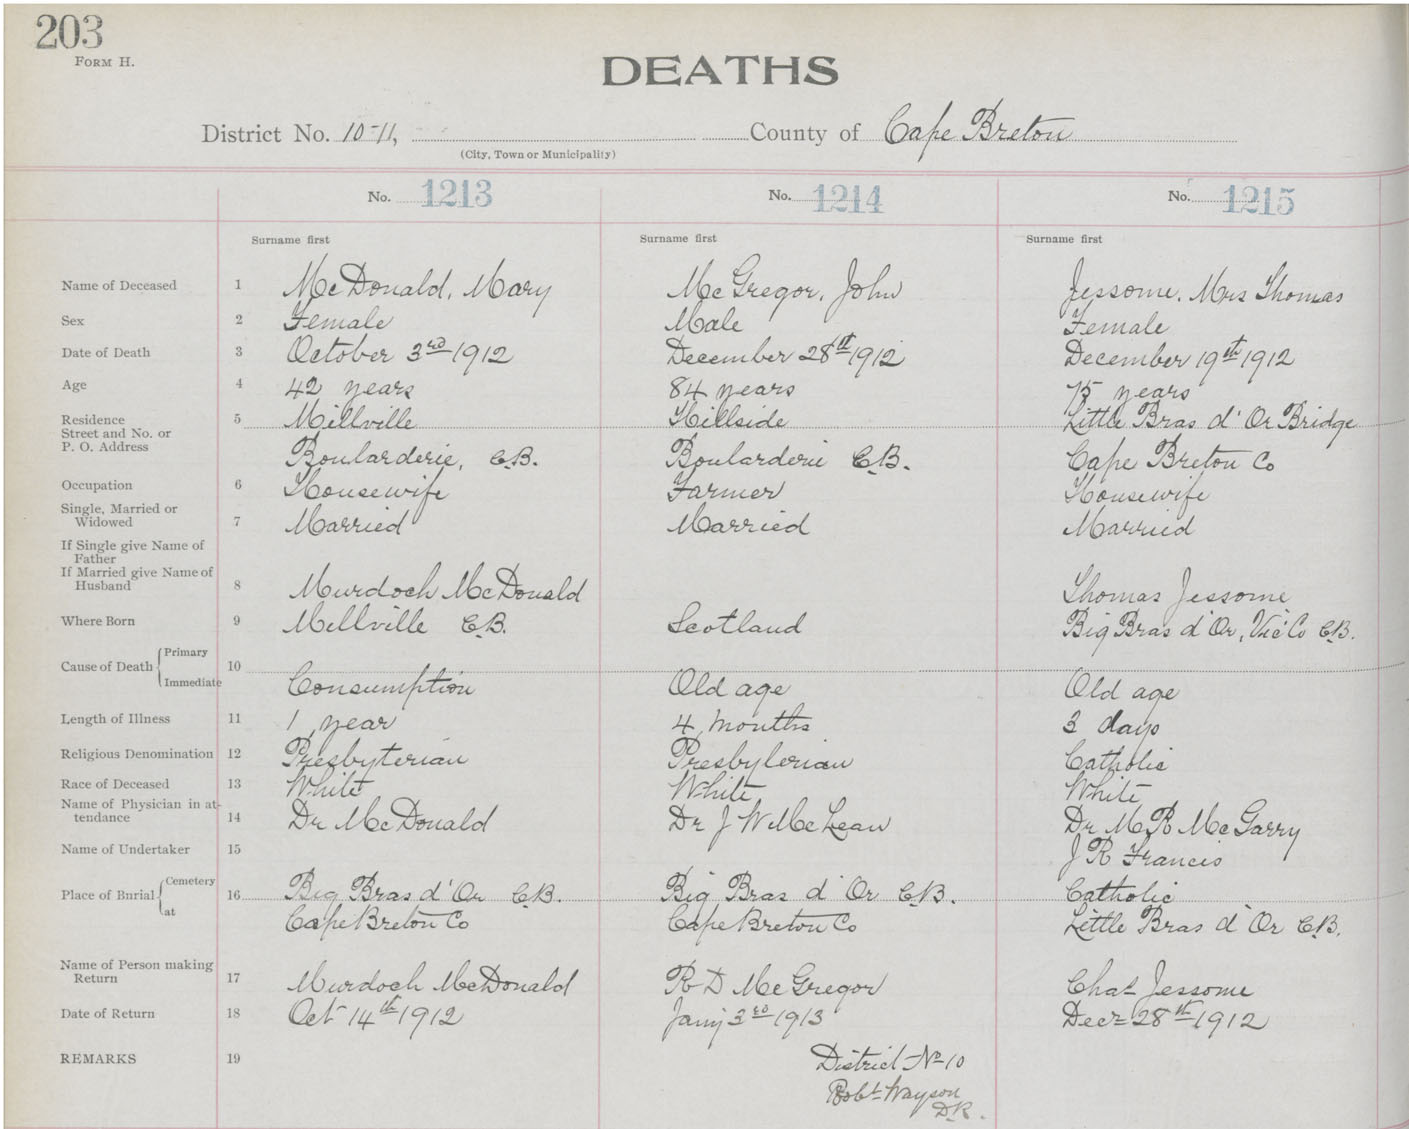 203
FORM H.
DEATHS
District No. 10-11, County of Cape Breton
(City, Town or Municipality)
No. 1213 No. 1214 No. 1215
Surname first Surname first Surname first
Name of Deceased 1 McDonald, Mary McGregor, John Jessome, Mrs Thomas
Sex 2 Female Male Female
Date of Death 3 October 3rd 1912 December 28th 1912 December 19th 1912
Age 4 42 years 84 years 75 years
Residence 5 Millville Hillside Little Bras d'Or Bridge
Street and No. or
P. O. Address Boularderie, C.B. Boularderie C.B. Cape Breton Co
Occupation 6 Housewife Farmer Housewife
Single, Married or
Widowed 7 Married Married Married
If Single give Name of
Father
If Married give Name of
Husband 8 Murdoch McDonald Thomas Jessome
Where Born 9 Millville C.B. Scotland Big Bras d'Or, Vic Co C.B.
Cause of Death Primary 10
Immediate Consumption Old age Old age
Length of Illness 11 1 year 4 months 3 days
Religious Denomination 12 Presbyterian Presbyterian Catholic
Race of Deceased 13 White White White
Name of Physician in at-
tendance 14 Dr McDonald Dr J W McLean Dr M R McGarry
Name of Undertaker 15 J R Francis
Place of Burial Cemetery 16 Big Bras d'Or C.B. Big Bras d'Or C.B. Catholic
at Cape Breton Co Cape Breton Co Little Bras d'Or C.B.
Name of Person making
Return 17 Murdoch McDonald R D McGregor Chas Jessome
Date of Return 18 Oct 14th 1912 Jany 3rd 1913 Decr 28th 1912
REMARKS 19 District No 10
Robt Wayson
D.R.